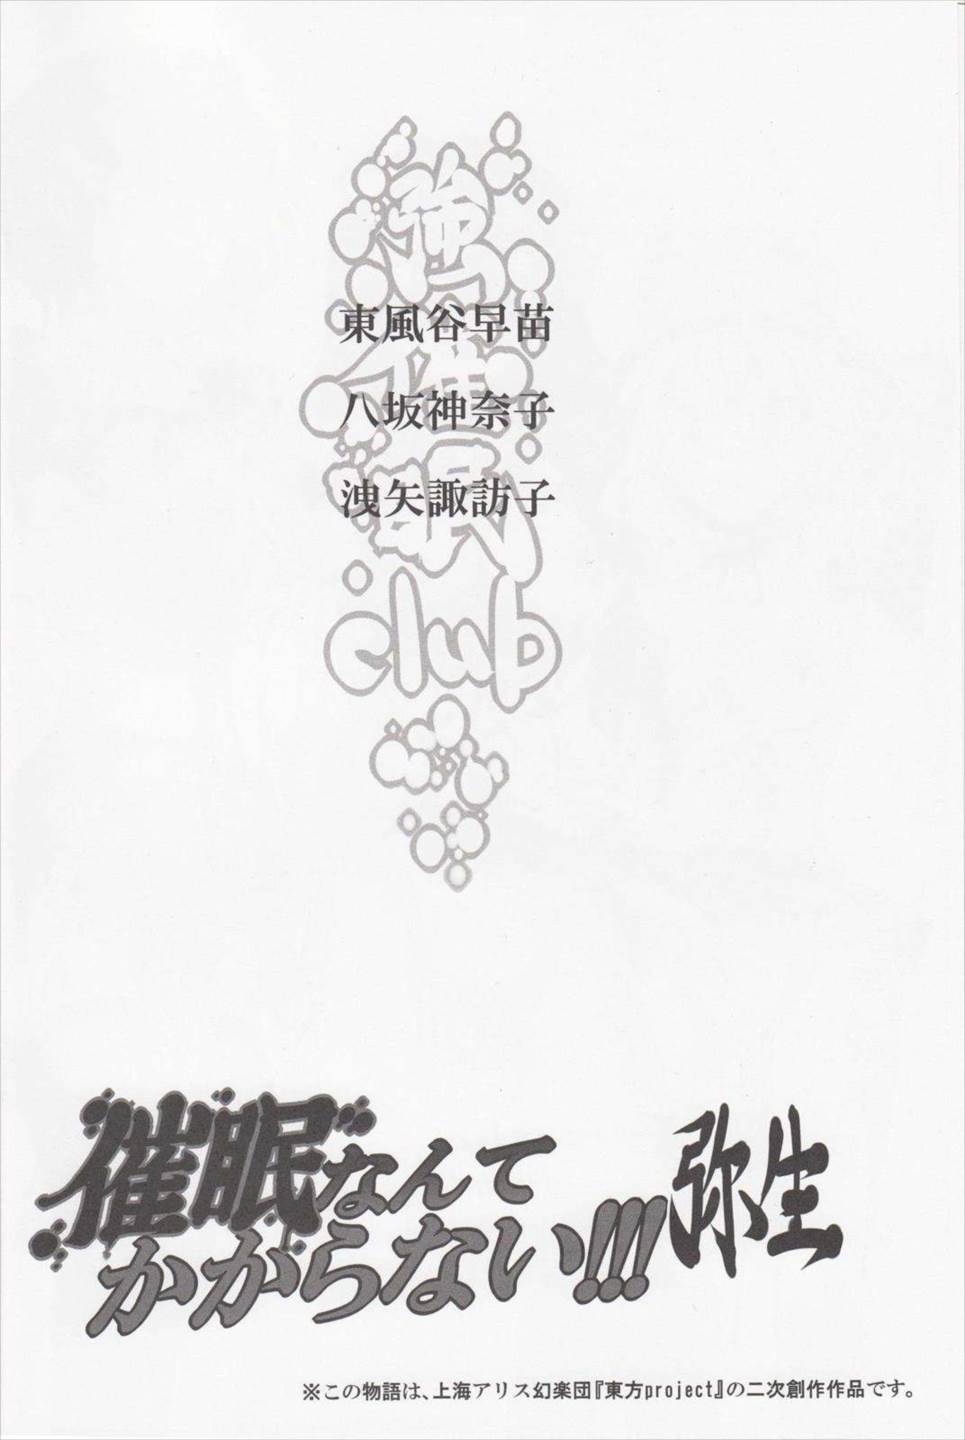 強
催
眠
club
東風谷早苗
八坂神奈子
洩矢諏訪子
催眠なんて
かからない!!!
弥生
※この物語は、上海アリス幻楽団『東方project』の二次創作作品です。